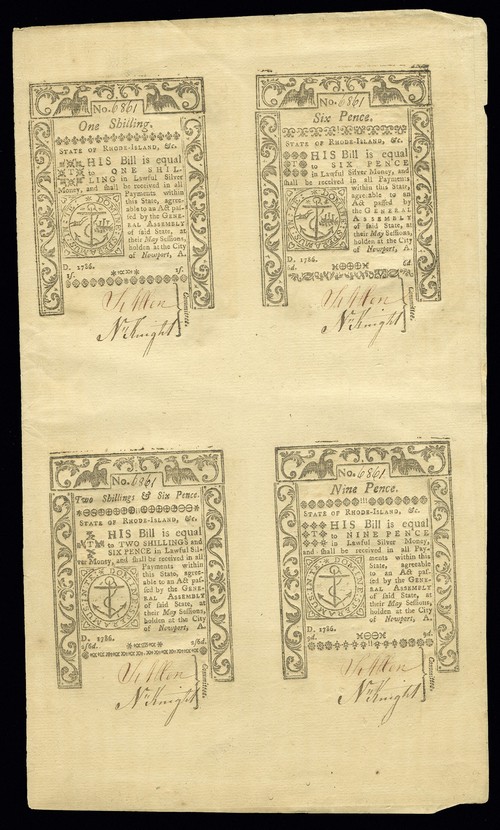 No. 6861
One Shilling.
STATE OF RHODE-ISLAND, &c.
THIS Bill is equal
to ONE SHIL-
LING in Lawful Silver
Money, and shall be received in all
Payments within
this State, agree-
able to an Act pas-
sed by the GENE-
RAL ASSEMBLY
of said State, at
their May Sessions,
holden at the City
of Newport, A.
D. 1786.
1s. 1s.
Committee.
N. Knight
No. 6861
Six Pence.
STATE OF RHODE-ISLAND, &c.
THIS Bill is equal
to SIX PENCE
in Lawful Silver Money, and
shall be received in all Payments
within this State,
agreeable to an
Act passed by
the GENERAL
ASSEMBLY
of said State, at
their May Sessions,
holden at the City
of Newport, A.
D. 1786.
6d. 6d.
Committee.
N. Knight
No. 6861
Two Shillings & Six Pence.
STATE OF RHODE-ISLAND, &c.
THIS Bill is equal
to TWO SHILLINGS and
SIX PENCE in Lawful Sil-
ver Money, and shall be received in all
Payments within
this State, agree-
able to an Act pas-
sed by the GENE-
RAL ASSEMBLY
of said State, at
their May Sessions,
holden at the City
of Newport, A.
D. 1786.
2s6d. 2s6d.
Committee.
N. Knight
No. 6861
Nine Pence.
STATE OF RHODE-ISLAND, &c.
THIS Bill is equal
to NINE PENCE
in Lawful Silver Money,
and shall be received in all Pay-
ments within this
State, agreeable
to an Act pas-
sed by the GENE-
RAL ASSEMBLY
of said State, at
their May Sessions,
holden at the City
of Newport, A.
D. 1786.
9d. 9d.
Committee.
N. Knight